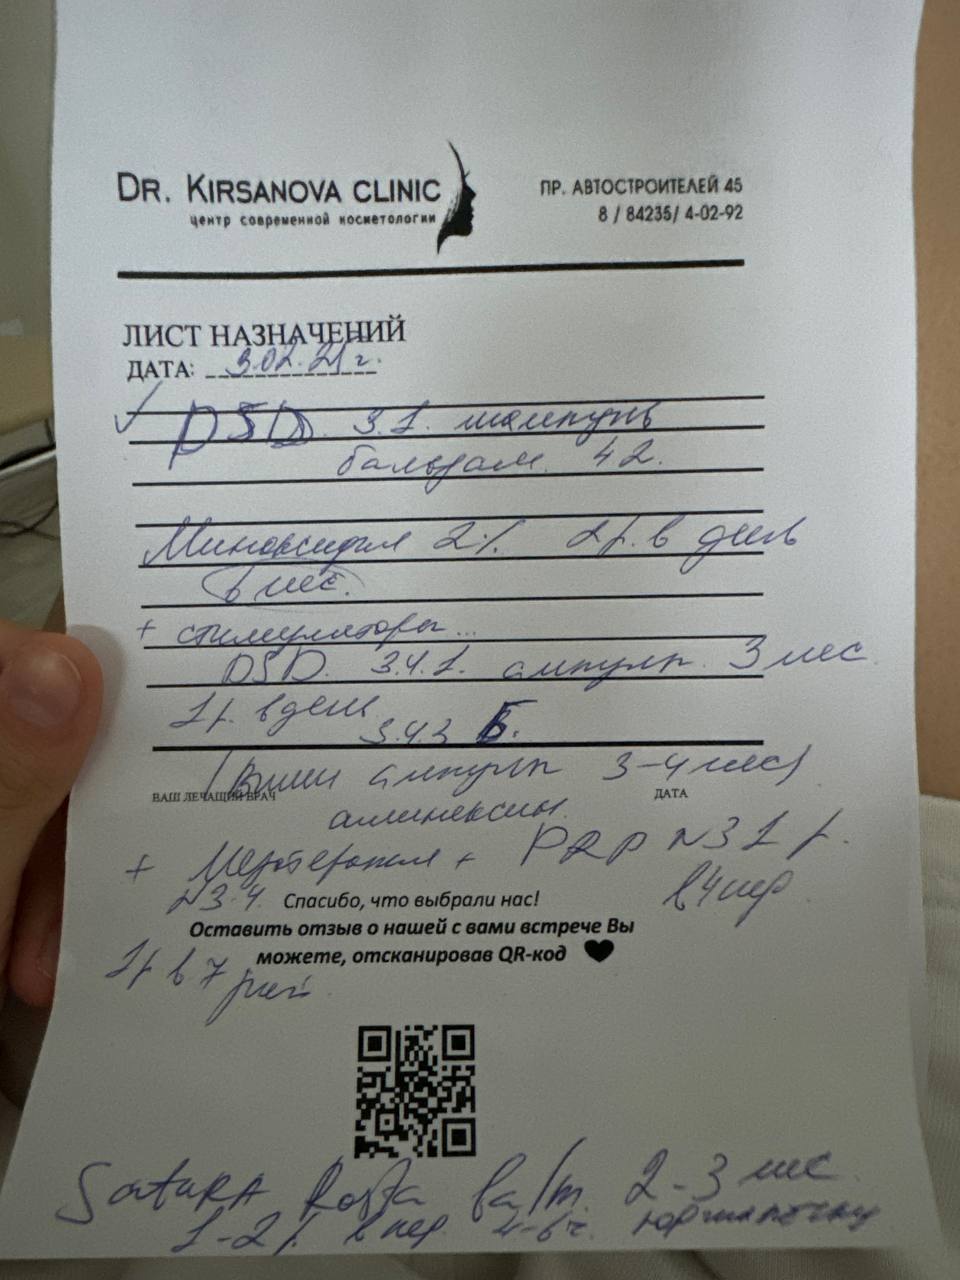 DR. KIRSANOVA CLINIC
центр современной косметологии
ПР. АВТОСТРОИТЕЛЕЙ 45
8 / 84235/ 4-02-92
ЛИСТ НАЗНАЧЕНИЙ
ДАТА: 3.02.21 г.
DSD 3.1. шампунь
бальзам 4 2.
Миноксидил 2% 2р. в день
6 мес.
+ стимуляторы...
DSD. 3.4.1. ампулы 3 мес
1р. в день
3.4.3 Б.
(Виши ампулы 3-4 мес)
ВАШ ЛЕЧАЩИЙ ВРАЧ
ДАТА
аминексил
+ Мезотерапия + PRP N3 1 р.
N3-4.
Спасибо, что выбрали нас!
Оставить отзыв о нашей с вами встрече Вы
можете, отсканировав QR-код
1р в 7 дней
Satura Rosta 2-3 мес
1-2 р. 4-6 ч.